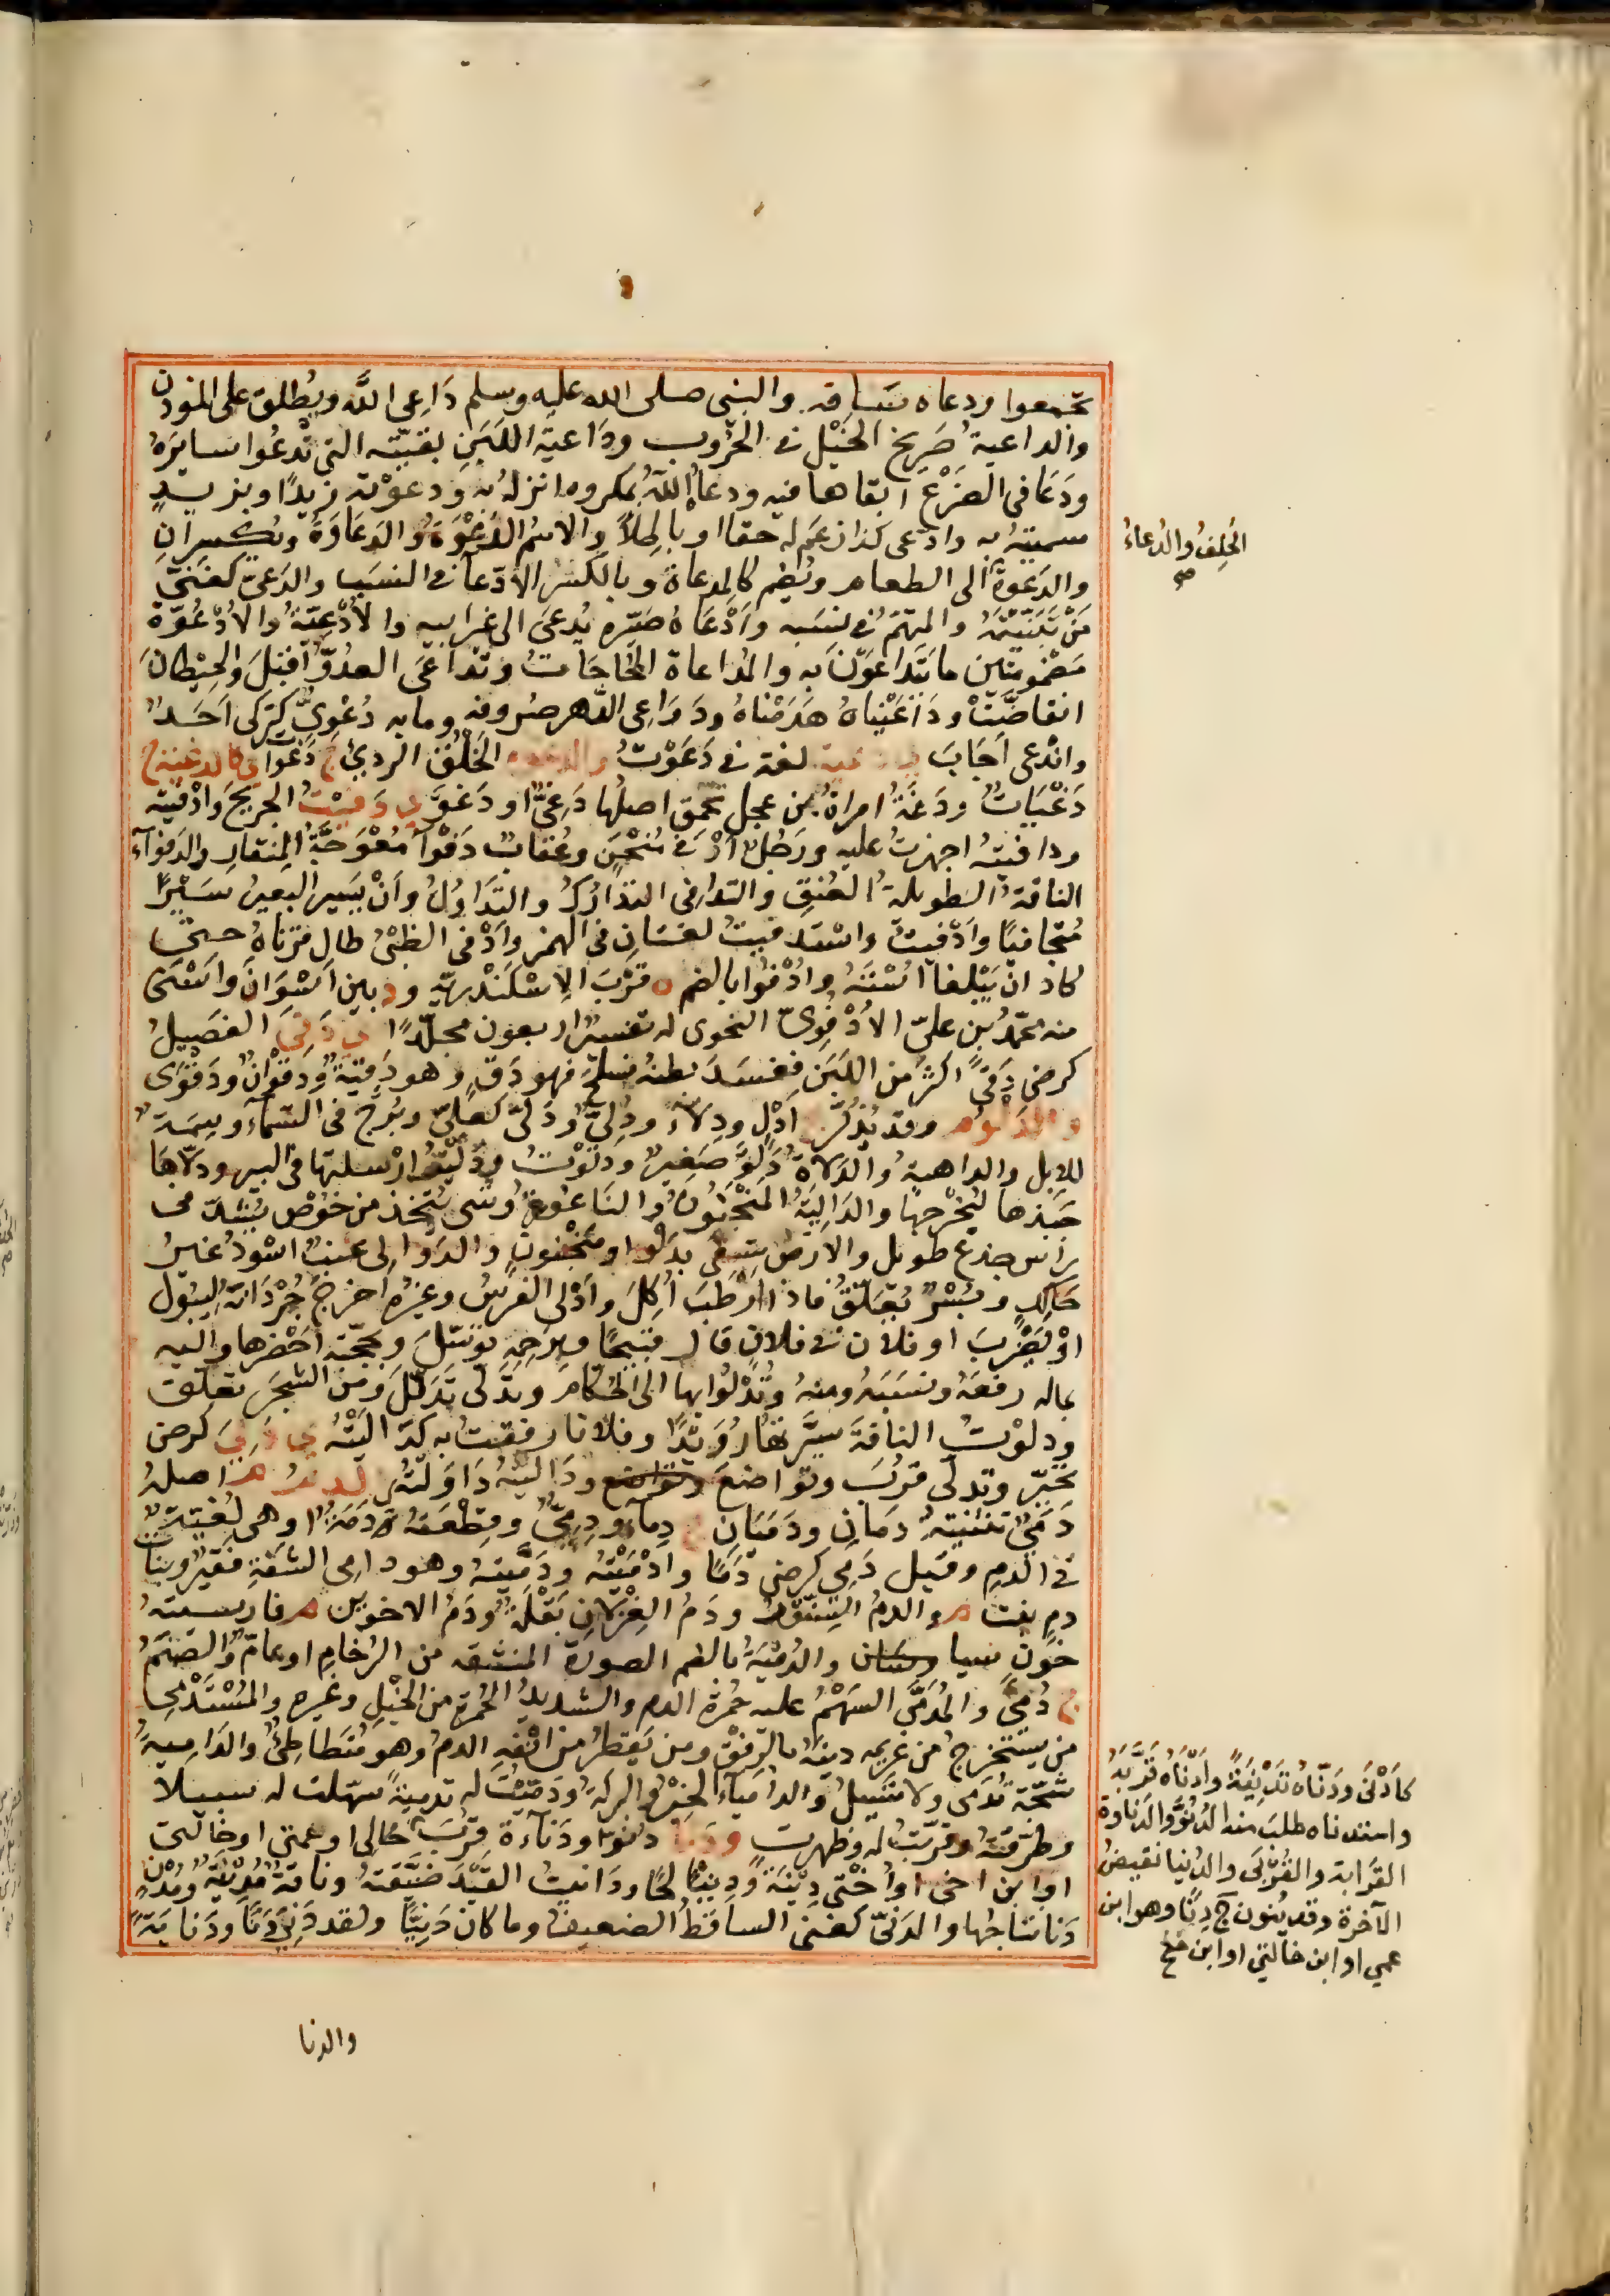 تجمعوا ودعاه ساقه والنبي صلى الله عليه وسلم دَاعِى اللّٰه ويُطلق على المؤذن
والداعيةُ صَرِيخ الخَيْل فى الحُرُوب ودَاعية اللَبَن بقيّته التى تَدعُوا سايرَهُ
ودَعَا فى الضَرْع ابقاها فيه ودعاهُ اللّٰهُ بمكروه انزلهُ به ودعوْته زيدًا وبزيدٍ
سميتهُ به وادّعى كذا زعَم له حقا او باطِلاً والاسمُ الدَعْوَةُ والدَعَاوَةُ ويُكسرانِ
والدَعوةُ الى الطعام ويُضم كالمدعاة وبالكَسْر الادّعآ فى النسَب والدَعىّ كغَنىّ
مَنْ تَبَنّيْتَهُ والمتهمُ فى نسَبه وَادْعَاهُ صَيّره يُدعَى الى غير ابيه والادْعِيّةُ والادْعُوّةُ
مَضْمومتين ما يَتَداعَوْنَ به والمُداعاة المُحاجَاتُ وتَدَاعَى العدُوُّ اقبَلَ والحِيْطانُ
انقاضَّتْ ودَاعَيْناهُ هَدَمْناهُ ودَوَاعِى الدَّهر صُروفه وما به دُعْوِىٌّ كتركى اَحَدٌ
واندعى اَجَابَ دعيت لغة فى دَعَوْتُ والدغوة الخُلُق الردئ ج دَغَوات كالدغية ج
دَغْيَاتٌ ودَغَةُ امراةٌ من عجل تحمق اصلُها دَغىٌ او دَغوٌ ى دَفيْتُ الجريحَ وادْفيته
ودافيتهُ اجهزتُ عليه ورَجُلٌ ادْفى مُنْحَنٍ وعُقابٌ دَفْوا مُعْوَجّةُ المِنقارِ والدَفوآء
الناقةُ الطويلةُ العُنقِ والتدافى التدَارُكُ والتدَاوُلُ وَاَنْ يَسِير البعيرُ سَيْرًا
مُتجافيًا وادْفيتُ واسْتَدفيتُ لغتانِ فى الهمز وَادْفى الظبْىُ طال قرناهُ حتى
كاد اَنْ يَبْلغا اسْتَهُ وادْفُوا بالضم ة قُرْبَ الاِسْكَنْدريّه ود بين اسْوَانَ واسْنَى
منه محمّدُ بن علىّ الادْفوِىّ النحوى له تفسيرٌ اربعون مجلّدًا ى دَقِىَ الفصِيلُ
كرضى دَقىً اكثرَ من اللَبَنِ ففسَدَ بطنهُ فسلحَ فهو دَقٍ وهو دَقيةٌ ودَقوْانٌ ودَقوْى
والدلو م وقد يُذكّر ج اَدْلٍ ودِلآء ودُلِىٌّ ودَلىً كعَلىً وبُرْجٌ فى السَّمآء وسِمَةٌ
للابل والداهيةُ والدَلاةُ دَلوٌ صَغيرةٌ ودلوْتُ ودَلَيْتُ ارْسلتها فى البير ودلاهَا
جَبَذها ليُخْرجها والدَالِيَةُ المَنْجَنُونُ والنَاعُورَةُ وشى يُتخذ من خوُصٍ يُشدّ فى
راس جذع طويل والارْضُ تسقى بدلوٍ او منجنونٍ والدوَالى عنبٌ اسْودُ غيرُ
حَالِكٍ وبُسْرٌ يُعَلّقُ فاذا ارْطَبَ اُكِلَ وادْلى الفرَسُ وغيره اخرجَ جُرْدَانهُ ليَبُول
اوْ يَضْرِبَ او فلان فى فلانٍ قال قبيحًا وبرَحِمِه توسّلَ وبحُجّته احْضرها واليه
بماله رفعهُ ونسَبَهُ ومنهُ وتُدْلُوا بها الى الحُكّام وتدَلى تَدَللَ ومن الشجَر تعلق
ودلوْتُ الناقةَ سيَّرتها رُوَيْدًا وفلانا رفقت به كدَاليْتُهُ ى دَلِىَ كرضى
تحيّر وتدلى قرُبَ وتواضَعَ وتواضع ودَاليتهُ دَاوَلتُهُ والدم م اصلهُ
دَمَىٌ تثنيتهُ دمَانِ ودَمَيَانِ ج دِمآء ودُمِىٌّ وقِطْعَتهُ دَمَةٌ او هى لُغيّةٌ
فى الدم وقيل دَمِى كرضى دَمًا وادْمَيْتُهُ ودَمَّيتهُ وهو دامى الشفةِ فقيرٌ وبنات
دم نبت م والدمُ السِنّوْرُ ودَمُ الغِزْلانِ بَقْلةٌ ودَمُ الاخوَين م فارسيته
خون سيا وسَان والدُميَةُ بالضم الصورة المنقشه من الرُخامِ او عامٌ والصنَمُ
ج دُمىً والمُدَمَّى السَهْمُ عليه حُمرة الدم والشديدُ الحُمرة من الخَيْلِ وغيره والمُسْتَدْمى
من يستخرجُ من غريمه دينَهُ بالرفقْ ومن يَقطرُ من انفه الدمُ وهو مُتَطاطِئُ والدَامِيةُ
شجّة تَدْمَى ولا تَسيلُ والدامياَء الخَيْرُ والبركةُ ودَمّيْتُ له تدميةً سهّلت له سبيلا
وطرّقتهُ وقرّبتُ له وظهرت ودنا دنوّا ودَنآوة قرُبَ خالى او عمتى او خالتى
او ابن اخى او اُخْتى دِنْيَةً ودِنْيًا لحًا ودَانيتُ القَيْدَ ضَيّقتهُ وناقةٌ مُدْنيةٌ ومُدْنٍ
دَنا نتاجُها والدَنىّ كغنى الساقطُ الضعيفُ وما كان دَنِيًّا ولقد دَنِىَ دَنًا ودَنايَةً
والدنا
الحَلِفُ والدُعاءُ
صح
كاَدْنَى ودَنّاهُ تَدْنيَةً وادْناهُ قرّبَهُ
واستدناه طلبَ منه الدُنُوَّ والدَناوة
القرَابة والقُرْبى والدُنيا نقيضُ
الآخرة وقد يُنون ج دِنًا وهو ابن
عمى او ابن خالتى او ابن صح